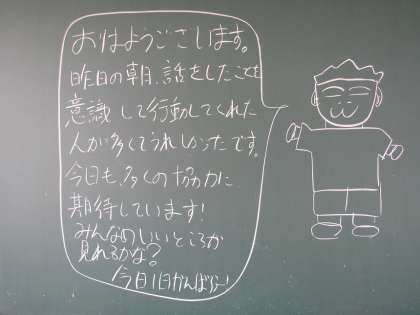 おはようございます。
昨日の朝、話をしたことを
意識して行動してくれた
人が多くてうれしかったです。
今日も、多くの協力に
期待しています!
みんなのいいところが
見れるかな?
今日1日がんばろう!